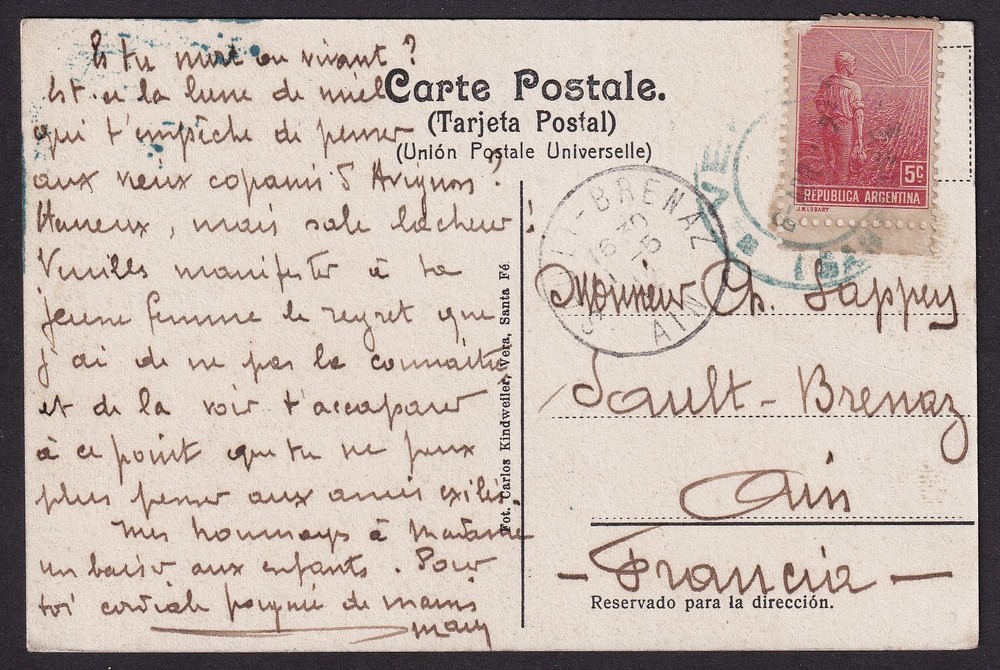 Es tu mort ou vivant?
Est ce la lune de miel
qui t'empêche de penser
aux vieux copains d'Avignon?
Heureux, mais sale lâcheur!
Veuilles manifester à ta
jeune femme le regret que
j'ai de ne pas la connaitre
et de la voir t'accaparer
à ce point que tu ne peux
plus penser aux amis exilés.
Mes hommages à Madame
un baiser aux enfants. Pour
toi cordiale poignée de mains
Carte Postale.
(Tarjeta Postal)
(Unión Postale Universelle)
Fot. Carlos Kindweiler, Vera, Santa Fé
5c
REPÚBLICA ARGENTINA
-BRENAZ
AIN
VE
Monsieur Ch. Sappey
Sault-Brenaz
Ain
- Francia -
Reservado para la dirección.